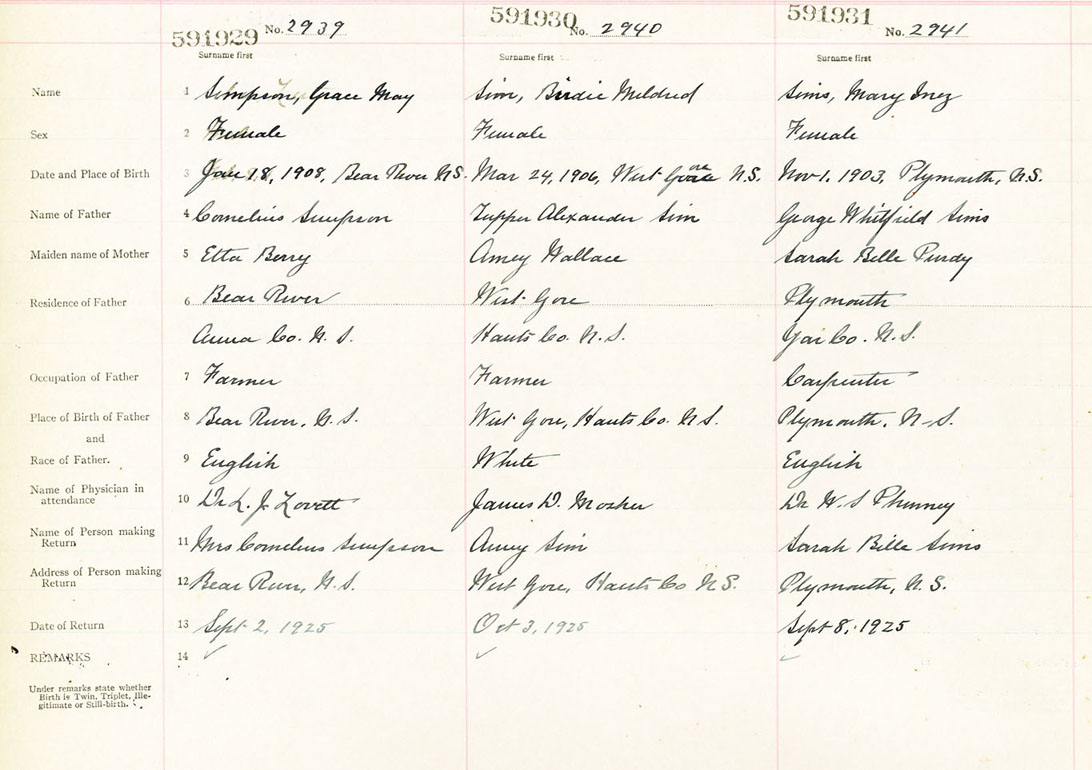 591929 No. 2939 591930 No. 2940 591931 No. 2941
Surname first Surname first Surname first
Name 1 Simpson, Grace May Sim, Birdie Mildred Sims, Mary Inez
Sex 2 Female Female Female
Date and Place of Birth 3 Jan 18, 1908, Bear River N.S. Mar 24, 1906, West Gore N.S. Nov 1. 1903, Plymouth, N.S.
Name of Father 4 Cornelius Simpson Tupper Alexander Sim George Whitfield Sims
Maiden name of Mother 5 Etta Berry Amey Wallace Sarah Belle Purdy
Residence of Father 6 Bear River West Gore Plymouth
Anna Co. N.S. Hants Co. N.S. Yar Co. N.S.
Occupation of Father 7 Farmer Farmer Carpenter
Place of Birth of Father 8 Bear River, N.S. West Gore, Hants Co. N.S. Plymouth, N.S.
and
Race of Father. 9 English White English
Name of Physician in 10 Dr L. J. Lovett James D. Mosher Dr W. S Phinney
attendance
Name of Person making 11 Mrs Cornelius Simpson Amey Sim Sarah Bille Sims
Return
Address of Person making 12 Bear River, N.S. West Gore, Hants Co N.S. Plymouth, N.S.
Return
Date of Return 13 Sept 2, 1925 Oct 3, 1925 Sept 8, 1925
REMARKS 14
Under remarks state whether
Birth is Twin, Triplet, Ille-
gitimate or Still-birth.